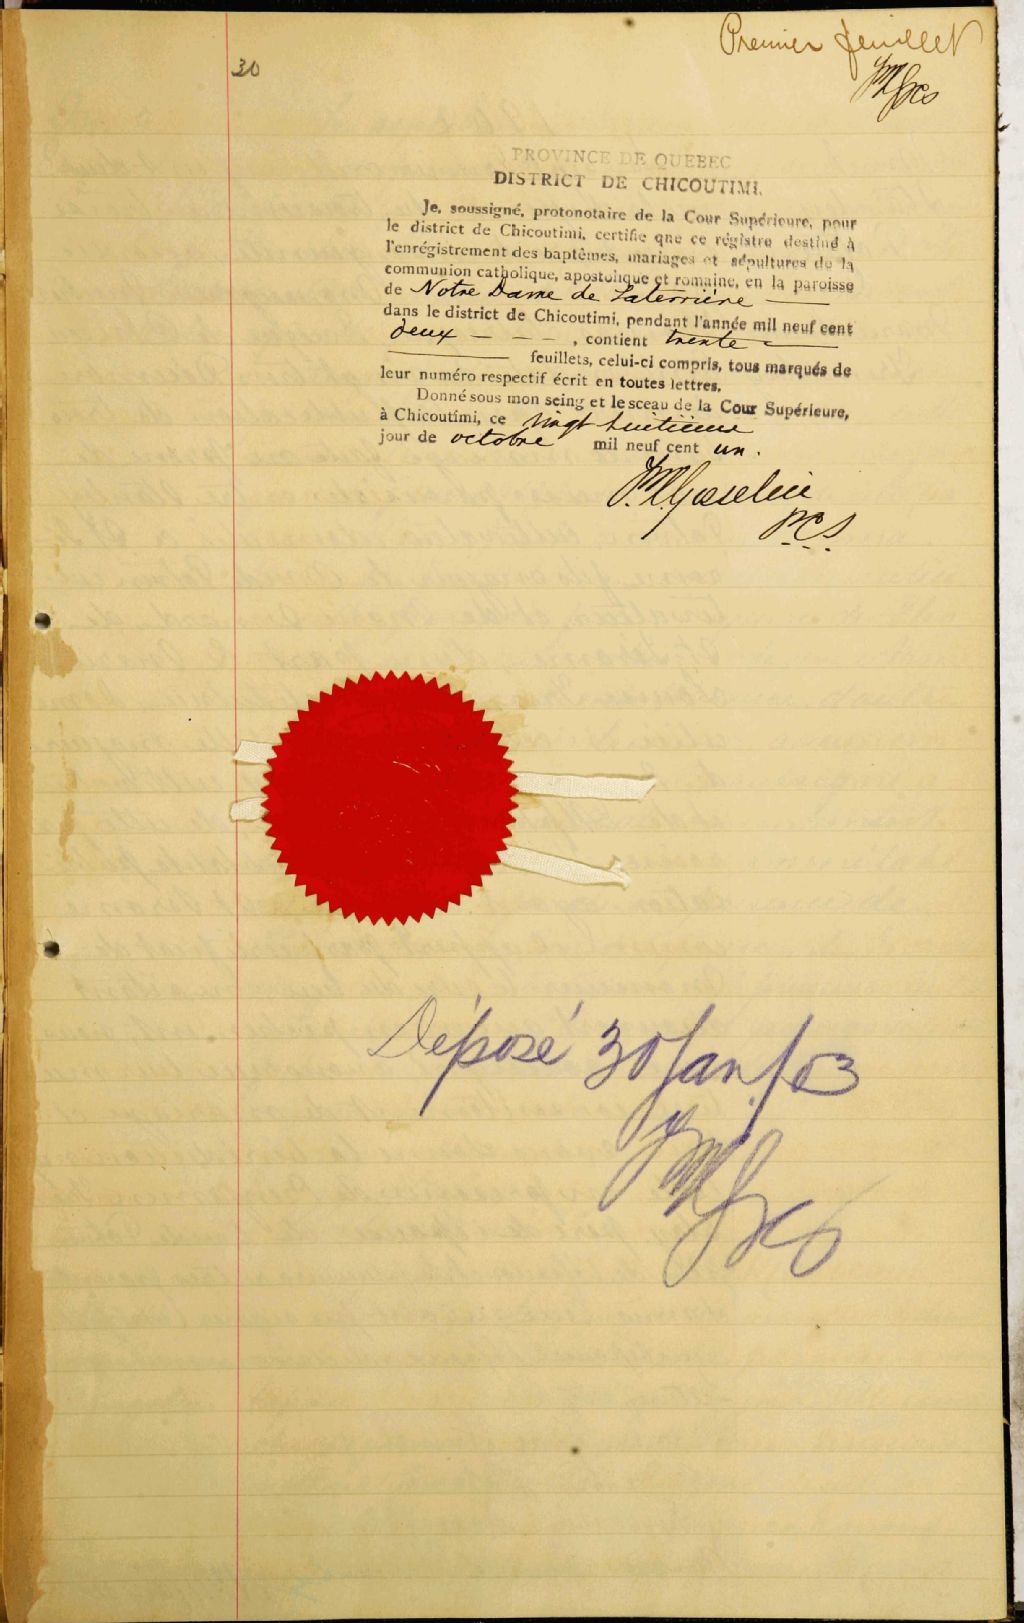 Premier feuillet
30
PROVINCE DE QUEBEC
DISTRICT DE CHICOUTIMI.
Je, soussigné, protonotaire de la Cour Supérieure, pour
le district de Chicoutimi, certifie que ce régistre destiné à
l'enrégistrement des baptêmes, mariages et sépultures de la
communion catholique, apostolique et romaine, en la paroisse
de Notre Dame de Laterrière —
dans le district de Chicoutimi, pendant l'année mil neuf cent
deux - - - , contient trente —
— feuillets, celui-ci compris, tous marqués de
leur numéro respectif écrit en toutes lettres.
Donné sous mon seing et le sceau de la Cour Supérieure,
à Chicoutimi, ce vingt huitième
jour de octobre mil neuf cent un.
Gosselin
P.C.S.
Déposé 30 Jan. /03